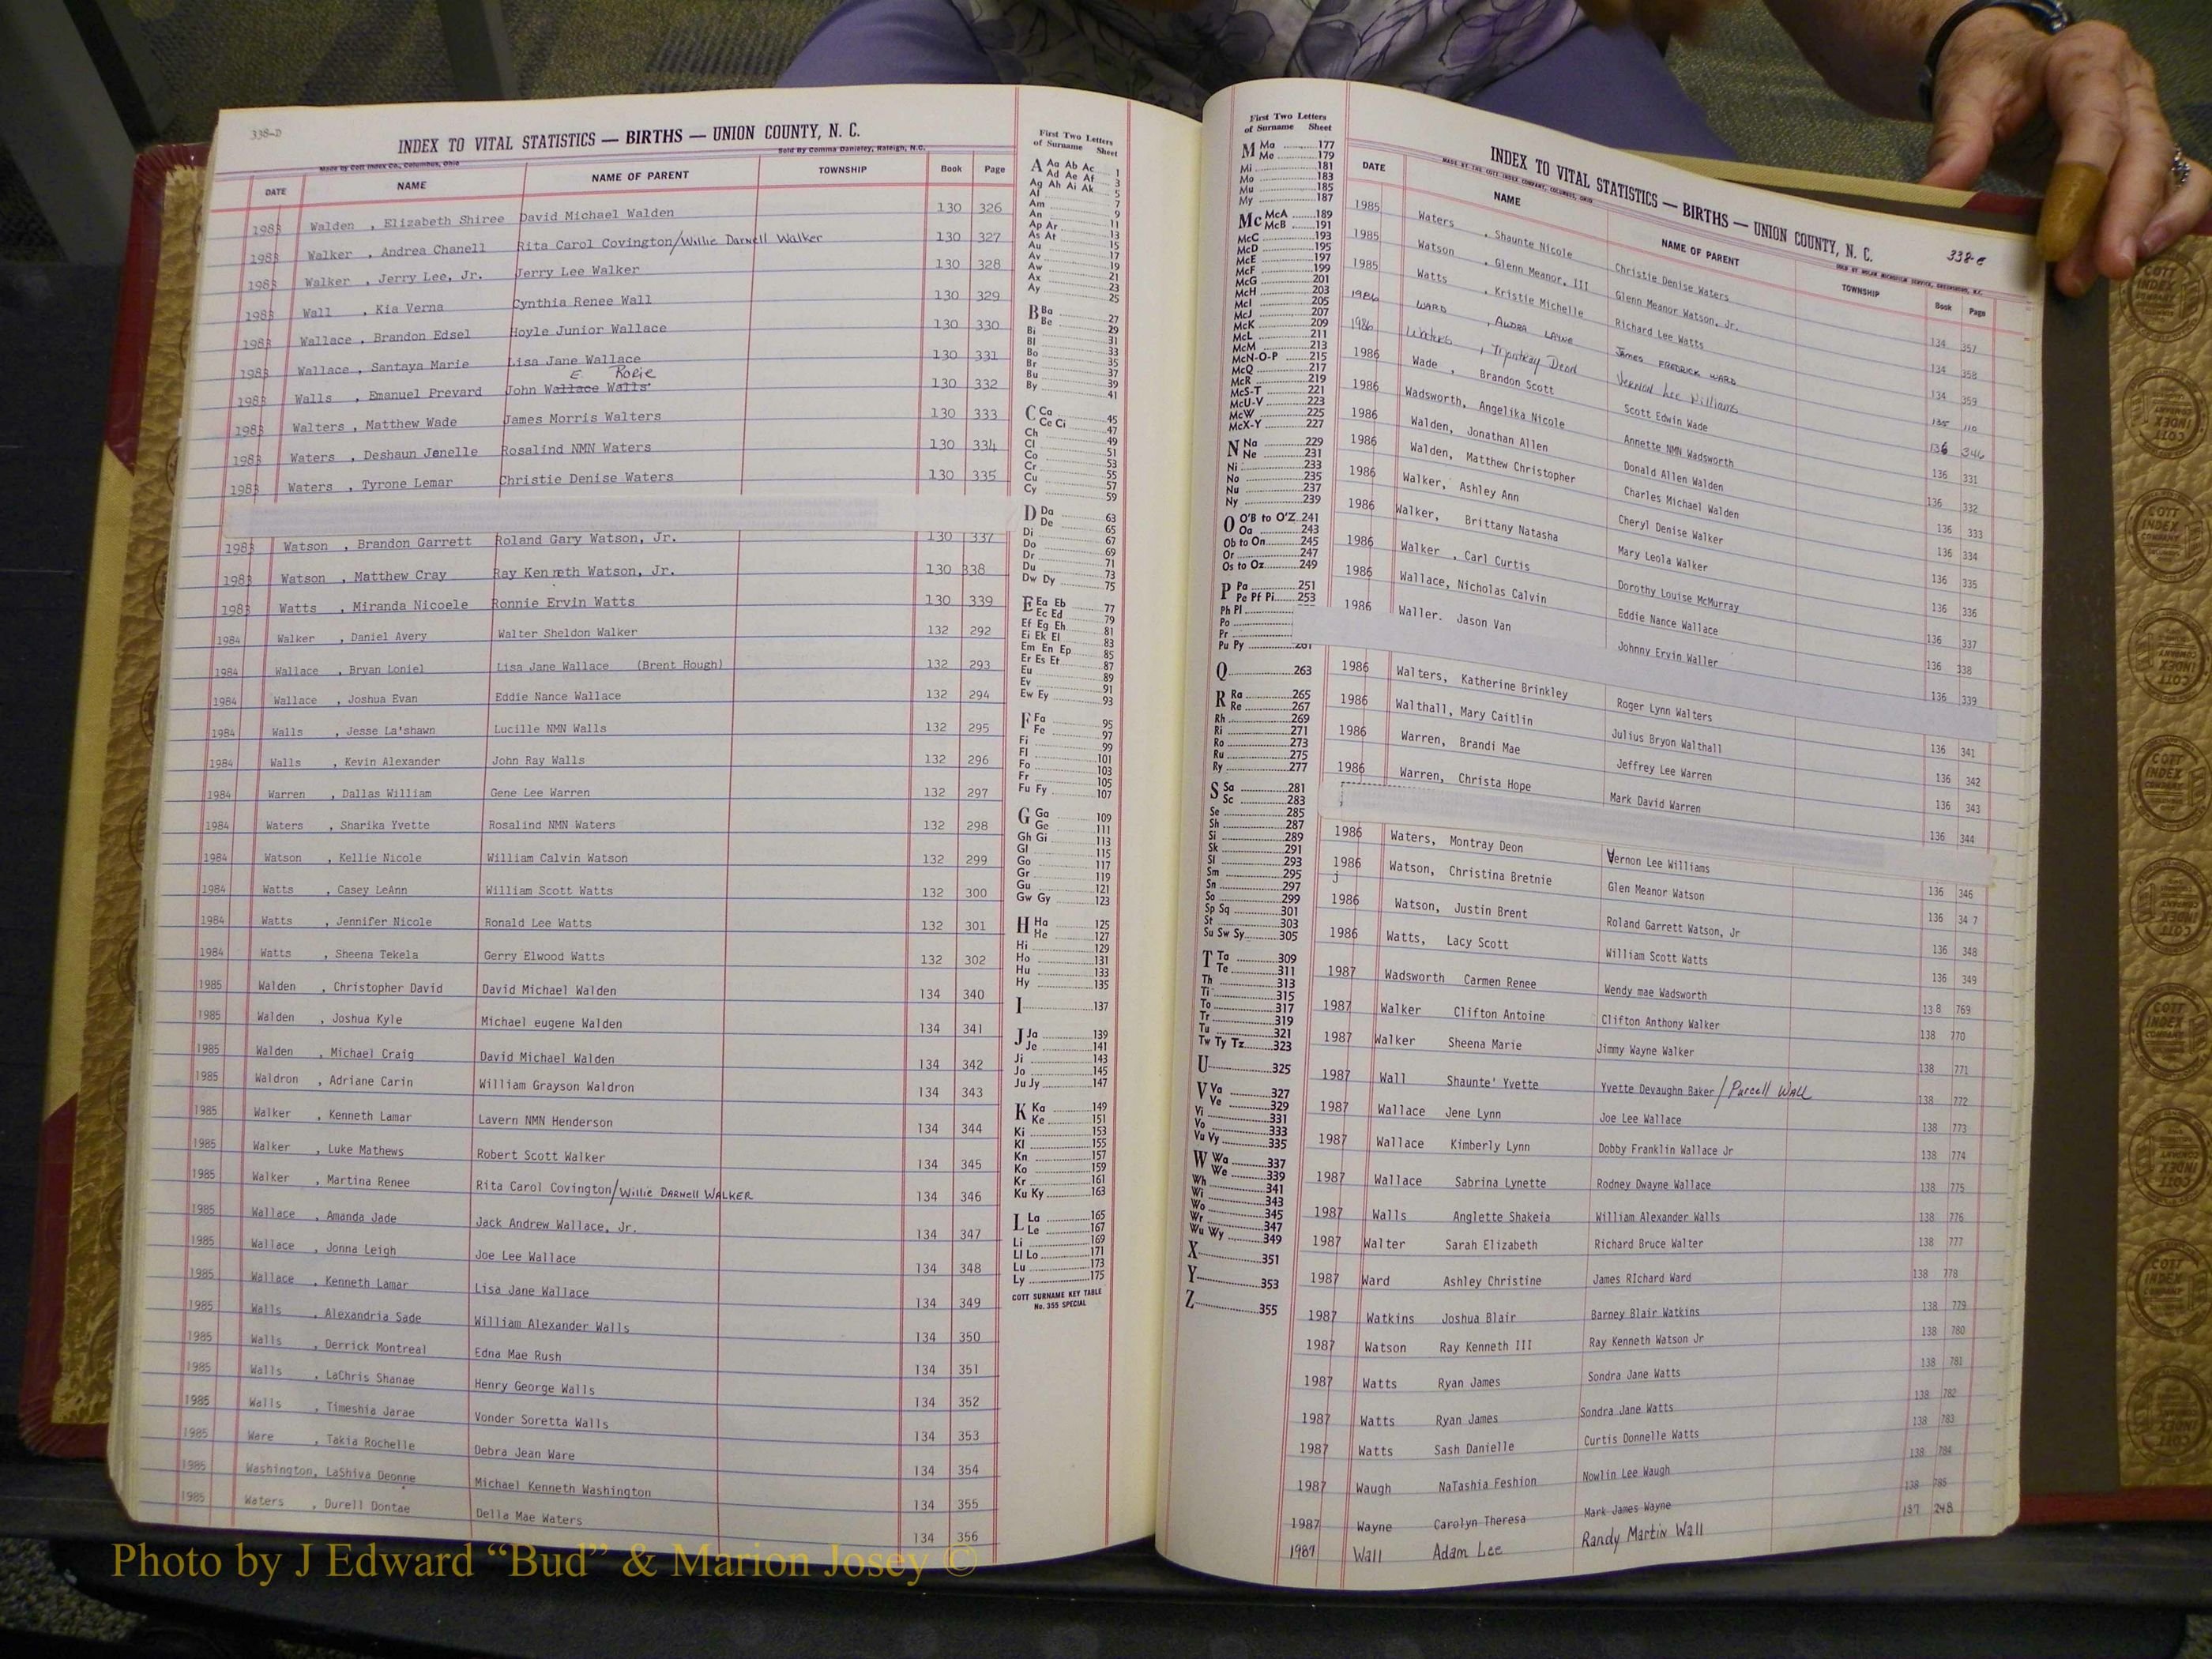 338-D
INDEX TO VITAL STATISTICS — BIRTHS — UNION COUNTY, N. C.
Made by Cott Index Co., Columbus, Ohio
Sold By Comma Danieley, Raleigh, N.C.
DATE NAME NAME OF PARENT TOWNSHIP Book Page
1983 Walden , Elizabeth Shiree David Michael Walden 130 326
1983 Walker , Andrea Chanell Rita Carol Covington/Willie Darnell Walker 130 327
1983 Walker , Jerry Lee, Jr. Jerry Lee Walker 130 328
1983 Wall , Kia Verna Cynthia Renee Wall 130 329
1983 Wallace , Brandon Edsel Hoyle Junior Wallace 130 330
1983 Wallace , Santaya Marie Lisa Jane Wallace 130 331
E. Rorie
1983 Walls , Emanuel Prevard John Wallace Walls 130 332
1983 Walters , Matthew Wade James Morris Walters 130 333
1983 Waters , Deshaun Jenelle Rosalind NMN Waters 130 334
1983 Waters , Tyrone Lemar Christie Denise Waters 130 335
1983 Watson , Brandon Garrett Roland Gary Watson, Jr. 130 337
1983 Watson , Matthew Cray Ray Kenneth Watson, Jr. 130 338
1983 Watts , Miranda Nicoele Ronnie Ervin Watts 130 339
1984 Walker , Daniel Avery Walter Sheldon Walker 132 292
1984 Wallace , Bryan Loniel Lisa Jane Wallace (Brent Hough) 132 293
1984 Wallace , Joshua Evan Eddie Nance Wallace 132 294
1984 Walls , Jesse La'shawn Lucille NMN Walls 132 295
1984 Walls , Kevin Alexander John Ray Walls 132 296
1984 Warren , Dallas William Gene Lee Warren 132 297
1984 Waters , Sharika Yvette Rosalind NMN Waters 132 298
1984 Watson , Kellie Nicole William Calvin Watson 132 299
1984 Watts , Casey LeAnn William Scott Watts 132 300
1984 Watts , Jennifer Nicole Ronald Lee Watts 132 301
1984 Watts , Sheena Tekela Gerry Elwood Watts 132 302
1985 Walden , Christopher David David Michael Walden 134 340
1985 Walden , Joshua Kyle Michael eugene Walden 134 341
1985 Walden , Michael Craig David Michael Walden 134 342
1985 Waldron , Adriane Carin William Grayson Waldron 134 343
1985 Walker , Kenneth Lamar Lavern NMN Henderson 134 344
1985 Walker , Luke Mathews Robert Scott Walker 134 345
1985 Walker , Martina Renee Rita Carol Covington/Willie Darnell Walker 134 346
1985 Wallace , Amanda Jade Jack Andrew Wallace, Jr. 134 347
1985 Wallace , Jonna Leigh Joe Lee Wallace 134 348
1985 Wallace , Kenneth Lamar Lisa Jane Wallace 134 349
1985 Walls , Alexandria Sade William Alexander Walls 134 350
1985 Walls , Derrick Montreal Edna Mae Rush 134 351
1985 Walls , LaChris Shanae Henry George Walls 134 352
1985 Walls , Timeshia Jarae Vonder Soretta Walls 134 353
1985 Ware , Takia Rochelle Debra Jean Ware 134 354
1985 Washington, LaShiva Deonne Michael Kenneth Washington 134 355
1985 Waters , Durell Dontae Della Mae Waters 134 356
First Two Letters
of Surname Sheet
A Aa Ab Ac 1
Ad Ae Af 3
Ag Ah Ai Ak 5
Al 7
Am 9
An 11
Ap Ar 13
As At 15
Au 17
Av 19
Aw 21
Ax 23
Ay 25
B Ba 27
Be 29
Bi 31
Bl 33
Bo 35
Br 37
Bu 39
By 41
C Ca 45
Ce Ci 47
Ch 49
Cl 51
Co 53
Cr 55
Cu 57
Cy 59
D Da 63
De 65
Di 67
Do 69
Dr 71
Du 73
Dw Dy 75
E Ea Eb 77
Ec Ed 79
Ef Eg Eh 81
Ei Ek El 83
Em En Ep 85
Er Es Et 87
Eu 89
Ev 91
Ew Ey 93
F Fa 95
Fe 97
Fi 99
Fl 101
Fo 103
Fr 105
Fu Fy 107
G Ga 109
Ge 111
Gh Gi 113
Gl 115
Go 117
Gr 119
Gu 121
Gw Gy 123
H Ha 125
He 127
Hi 129
Ho 131
Hu 133
Hy 135
I 137
J Ja 139
Je 141
Ji 143
Jo 145
Ju Jy 147
K Ka 149
Ke 151
Ki 153
Kl 155
Kn 157
Ko 159
Kr 161
Ku Ky 163
L La 165
Le 167
Li 169
Ll Lo 171
Lu 173
Ly 175
COTT SURNAME KEY TABLE
No. 355 SPECIAL
First Two Letters
of Surname Sheet
M Ma 177
Me 179
Mi 181
Mo 183
Mu 185
My 187
Mc McA 189
McB 191
McC 193
McD 195
McE 197
McF 199
McG 201
McH 203
McI 205
McJ 207
McK 209
McL 211
McM 213
McN-O-P 215
McQ 217
McR 219
McS-T 221
McU-V 223
McW 225
McX-Y 227
N Na 229
Ne 231
Ni 233
No 235
Nu 237
Ny 239
O O'B to O'Z 241
Oa 243
Ob to On 245
Or 247
Os to Oz 249
P Pa 251
Pe Pf Pi 253
Ph Pl
Po
Pr
Pu Py 261
Q 263
R Ra 265
Re 267
Rh 269
Ri 271
Ro 273
Ru 275
Ry 277
S Sa 281
Sc 283
Se 285
Sh 287
Si 289
Sk 291
Sl 293
Sm 295
Sn 297
So 299
Sp Sq 301
St 303
Su Sw Sy 305
T Ta 309
Te 311
Th 313
Ti 315
To 317
Tr 319
Tu 321
Tw Ty Tz 323
U 325
V Va 327
Ve 329
Vi 331
Vo 333
Vu Vy 335
W Wa 337
We 339
Wh 341
Wi 343
Wo 345
Wr 347
Wu Wy 349
X 351
Y 353
Z 355
INDEX TO VITAL STATISTICS — BIRTHS — UNION COUNTY, N. C.
338-E
MADE BY THE COTT INDEX COMPANY, COLUMBUS, OHIO
DATE NAME NAME OF PARENT TOWNSHIP Book Page
1985 Waters , Shaunte Nicole Christie Denise Waters 134 357
1985 Watson , Glenn Meanor, III Glenn Meanor Watson, Jr. 134 358
1985 Watts , Kristie Michelle Richard Lee Watts 134 359
1986 WARD , James FREDRICK WARD 135 110
1986 Waters , Montray Deon Vernon Lee Williams 136 346
1986 Wade , Brandon Scott Scott Edwin Wade 136 331
1986 Wadsworth, Angelika Nicole Annette NMN Wadsworth 136 332
1986 Walden, Jonathan Allen Donald Allen Walden 136 333
1986 Walden, Matthew Christopher Charles Michael Walden 136 334
1986 Walker, Ashley Ann Cheryl Denise Walker 136 335
1986 Walker, Brittany Natasha Mary Leola Walker 136 336
1986 Walker , Carl Curtis Dorothy Louise McMurray 136 337
1986 Wallace, Nicholas Calvin Eddie Nance Wallace 136 338
1986 Waller. Jason Van Johnny Ervin Waller 136 339
1986 Walters, Katherine Brinkley Roger Lynn Walters 136 341
1986 Walthall, Mary Caitlin Julius Bryon Walthall 136 342
1986 Warren, Brandi Mae Jeffrey Lee Warren 136 343
1986 Warren, Christa Hope Mark David Warren 136 344
1986 Waters, Montray Deon Vernon Lee Williams 136 346
1986 Watson, Christina Bretnie Glen Meanor Watson 136 34 7
j
1986 Watson, Justin Brent Roland Garrett Watson, Jr 136 348
1986 Watts, Lacy Scott William Scott Watts 136 349
1987 Wadsworth Carmen Renee Wendy mae Wadsworth 138 769
1987 Walker Clifton Antoine Clifton Anthony Walker 138 770
1987 Walker Sheena Marie Jimmy Wayne Walker 138 771
1987 Wall Shaunte' Yvette Yvette Devaughn Baker / Purcell WALL 138 772
1987 Wallace Jene Lynn Joe Lee Wallace 138 773
1987 Wallace Kimberly Lynn Dobby Franklin Wallace Jr 138 774
1987 Wallace Sabrina Lynette Rodney Dwayne Wallace 138 775
1987 Walls Anglette Shakeia William Alexander Walls 138 776
1987 Walter Sarah Elizabeth Richard Bruce Walter 138 777
1987 Ward Ashley Christine James RIchard Ward 138 778
1987 Watkins Joshua Blair Barney Blair Watkins 138 779
1987 Watson Ray Kenneth III Ray Kenneth Watson Jr 138 780
1987 Watts Ryan James Sondra Jane Watts 138 781
1987 Watts Ryan James Sondra Jane Watts 138 782
1987 Watts Sash Danielle Curtis Donnelle Watts 138 783
1987 Waugh NaTashia Feshion Nowlin Lee Waugh 138 784
1987 Wayne Carolyn Theresa Mark James Wayne 138 785
1987 Wall Adam Lee Randy Martin Wall 137 248
COTT
INDEX
COMPANY
Photo by J Edward “Bud” & Marion Josey ©